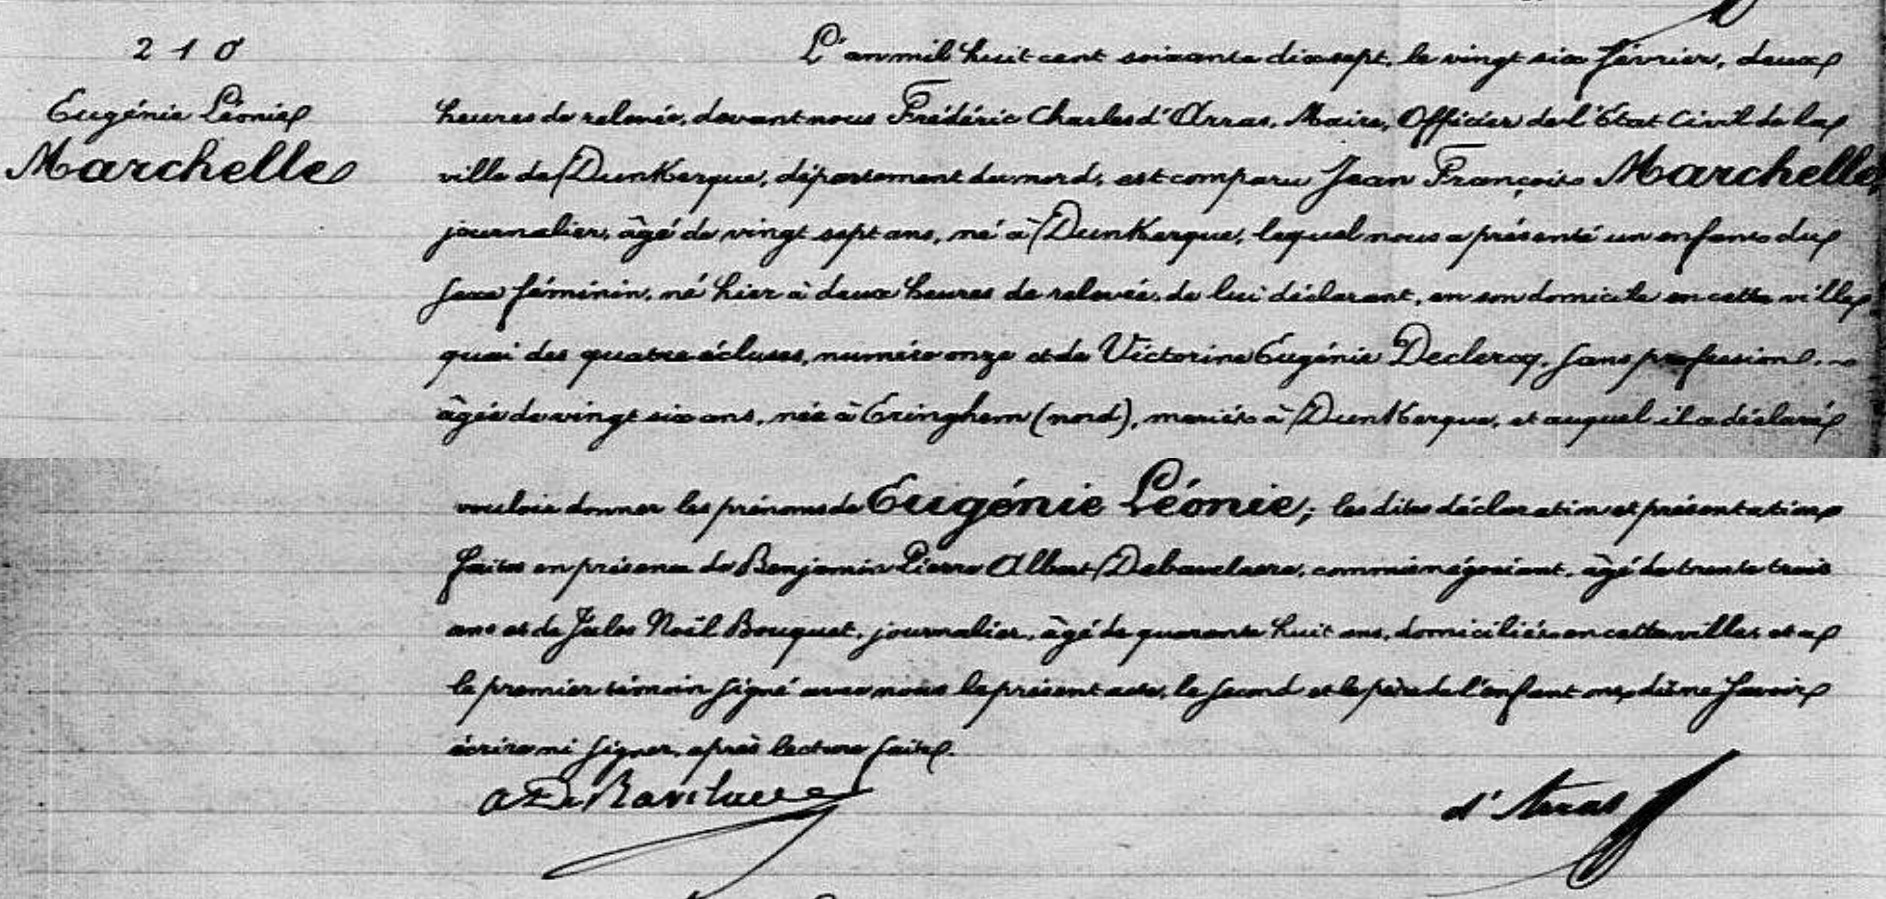 210
Eugénie Léonie
Marchelle
L'an mil huit cent soixante dix sept, le vingt six février, deux
heures de relevée, devant nous Frédéric Charles d'Arras, Maire, Officier de l'Etat Civil de la
ville de Dunkerque, département du nord, est comparu Jean François Marchelle,
journalier, âgé de vingt sept ans, né à Dunkerque, lequel nous a présenté un enfant du
sexe féminin, né hier à deux heures de relevée, de lui déclarant, en son domicile en cette ville,
quai des quatre écluses, numéro onze et de Victorine Eugénie Declercq, sans profession,
âgée de vingt six ans, née à Eringhem (nord), mariés à Dunkerque, et auquel il a déclaré
vouloir donner les prénoms de Eugénie Léonie; les dites déclaration et présentation
faites en présence de Benjamin Pierre Albert Debavelaere, commis négociant, âgé de trente trois
ans et de Jules Noël Bouquet, journalier, âgé de quarante huit ans, domiciliés en cette ville; et a
le premier témoin signé avec nous le présent acte, le second et le père de l'enfant ont dit ne savoir
écrire ni signer, après lecture faite.
A De Bavelaere
d'Arras